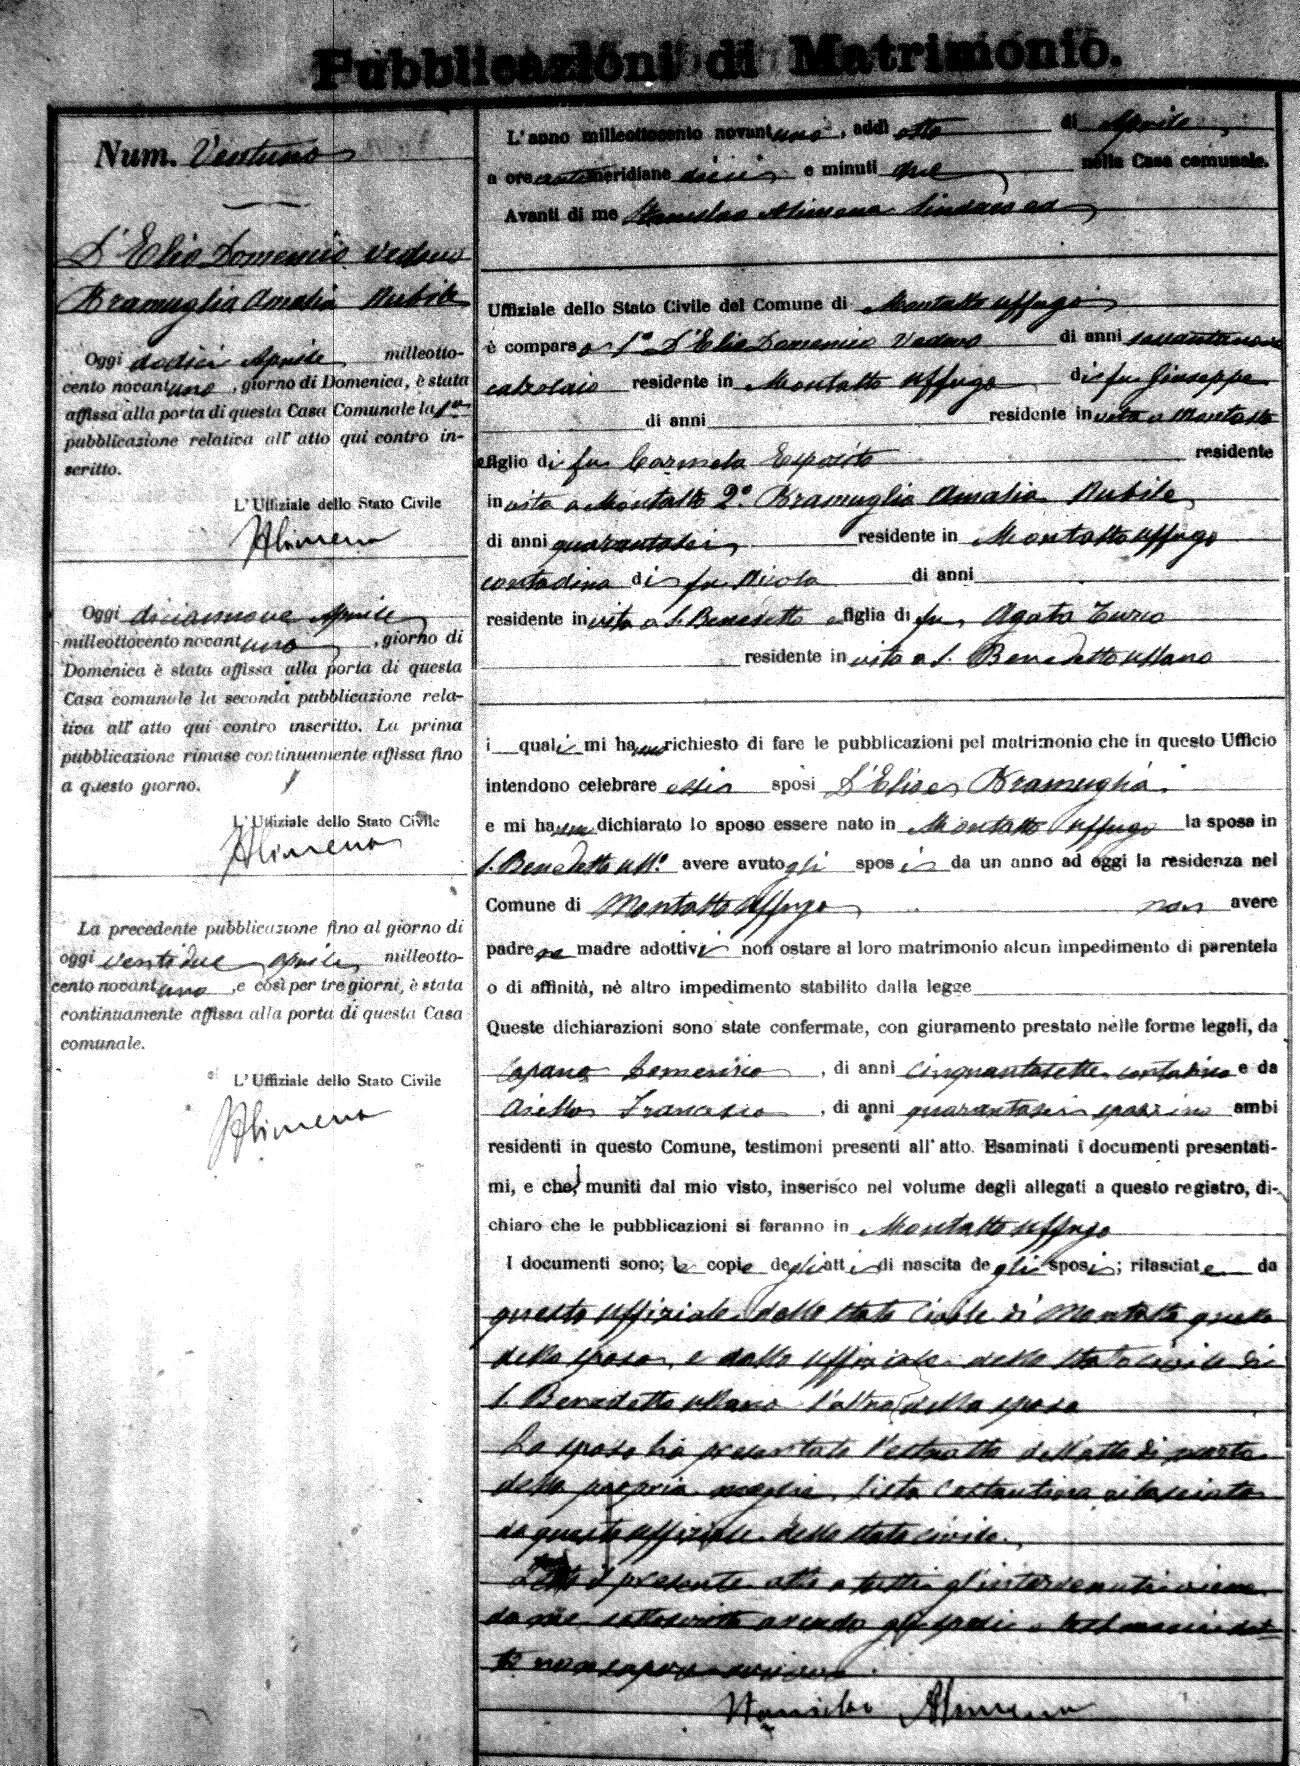 Pubblicazioni di Matrimonio.
Num. Ventuno
D'Elio Domenico Vedovo
Bramuglia Amalia Nubile
Oggi dodici Aprile milleotto-
cento novantuno, giorno di Domenica, è stata
affissa alla porta di questa Casa Comunale la 1ª
pubblicazione relativa all' atto qui contro in-
scritto.
L' Uffiziale dello Stato Civile
SAlimena
Oggi diciannove Aprile
milleottocento novantuno, giorno di
Domenica è stata affissa alla porta di questa
Casa comunale la seconda pubblicazione rela-
tiva all' atto qui contro inscritto. La prima
pubblicazione rimase continuamente affissa fino
a questo giorno.
L' Uffiziale dello Stato Civile
SAlimena
La precedente pubblicazione fino al giorno di
oggi ventidue aprile milleotto-
cento novantuno, e così per tre giorni, è stata
continuamente affissa alla porta di questa Casa
comunale.
L' Uffiziale dello Stato Civile
SAlimena
L' anno milleottocento novantuno, addì otto di Aprile,
a ore antimeridiane dieci e minuti due nella Casa comunale.
Avanti di me Stanislao Alimena Sindaco ed
Uffiziale dello Stato Civile del Comune di Montalto Uffugo
è comparso 1º D'Elio Domenico Vedovo di anni
calzolaio residente in Montalto Uffugo di fu Giuseppe
di anni residente in vita a Montalto
e figlio di fu Carmela Esposito residente
in vita a Montalto 2º. Bramuglia Amalia Nubile
di anni quarantasei residente in Montalto Uffugo
contadina di fu Nicola di anni
residente in vita a S. Benedetto e figlia di fu Agata Turco
residente in vita a S. Benedetto Ullano
i quali mi hanno richiesto di fare le pubblicazioni pel matrimonio che in questo Ufficio
intendono celebrare essi sposi D'Elio e Bramuglia
e mi hanno dichiarato lo sposo essere nato in Montalto Uffugo la sposa in
S. Benedetto Ullº. avere avuto gli sposi da un anno ad oggi la residenza nel
Comune di Montalto Uffugo non avere
padre ne madre adottivi non ostare al loro matrimonio alcun impedimento di parentela
o di affinità, nè altro impedimento stabilito dalla legge
Queste dichiarazioni sono state confermate, con giuramento prestato nelle forme legali, da
Capano Domenico, di anni cinquantasette contadino e da
Aiello Francesco, di anni quarantasei ambi
residenti in questo Comune, testimoni presenti all' atto. Esaminati i documenti presentati-
mi, e che, muniti dal mio visto, inserisco nel volume degli allegati a questo registro, di-
chiaro che le pubblicazioni si faranno in Montalto Uffugo
I documenti sono; le copie degli atti di nascita degli sposi; rilasciate da
questo Uffiziale dello Stato Civile di Montalto quella
dello sposo, e dallo Uffiziale dello Stato Civile di
S. Benedetto Ullano l'altra della sposa
Lo sposo ha presentato l'estratto dell'atto di morte
della propria moglie, rilasciato
da questo Uffiziale dello Stato Civile.
Letto il presente atto a tutti gl'intervenuti viene
da me sottoscritto avendo gli sposi e testimoni det-
to non sapere scrivere
Stanislao Alimena